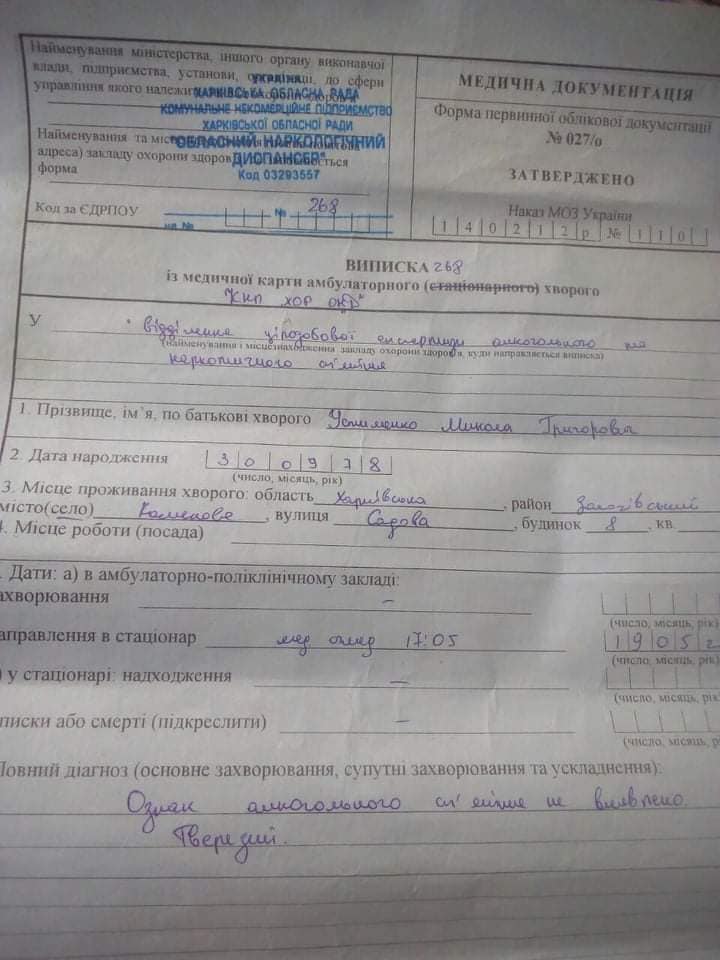 Найменування міністерства, іншого органу виконавчої
влади, підприємства, установи, організації, до сфери
управління якого належить
УКРАЇНА
ХАРКІВСЬКА ОБЛАСНА РАДА
КОМУНАЛЬНЕ НЕКОМЕРЦІЙНЕ ПІДПРИЄМСТВО
ХАРКІВСЬКОЇ ОБЛАСНОЇ РАДИ
"ОБЛАСНИЙ НАРКОЛОГІЧНИЙ
ДИСПАНСЕР"
Код 03293557
Найменування та
адреса) закладу охорони здоров
форма
Код за ЄДРПОУ
№ 268
МЕДИЧНА ДОКУМЕНТАЦІЯ
Форма первинної облікової документації
№ 027/о
ЗАТВЕРДЖЕНО
Наказ МОЗ України
140212р № 110
ВИПИСКА 268
із медичної карти амбулаторного (стаціонарного) хворого
"КНП ХОР ОНД"
У відділення цілодобової експертизи алкогольного та
(найменування і місцезнаходження закладу охорони здоров'я, куди направляється виписка)
наркотичного сп'яніння
1. Прізвище, ім'я, по батькові хворого Устименко Микола Григорович
2. Дата народження 300978
(число, місяць, рік)
3. Місце проживання хворого: область Харківська, район
місто(село), вулиця Садова, будинок 8, кв.
4. Місце роботи (посада)
. Дати: а) в амбулаторно-поліклінічному закладі:
ахворювання –
(число, місяць, рік)
аправлення в стаціонар мед огляд 17:05 1905
(число, місяць, рік)
) у стаціонарі: надходження –
(число, місяць, рік)
иписки або смерті (підкреслити) –
(число, місяць, рік
Повний діагноз (основне захворювання, супутні захворювання та ускладнення):
Ознак алкогольного сп'яніння не виявлено.
Тверезий.